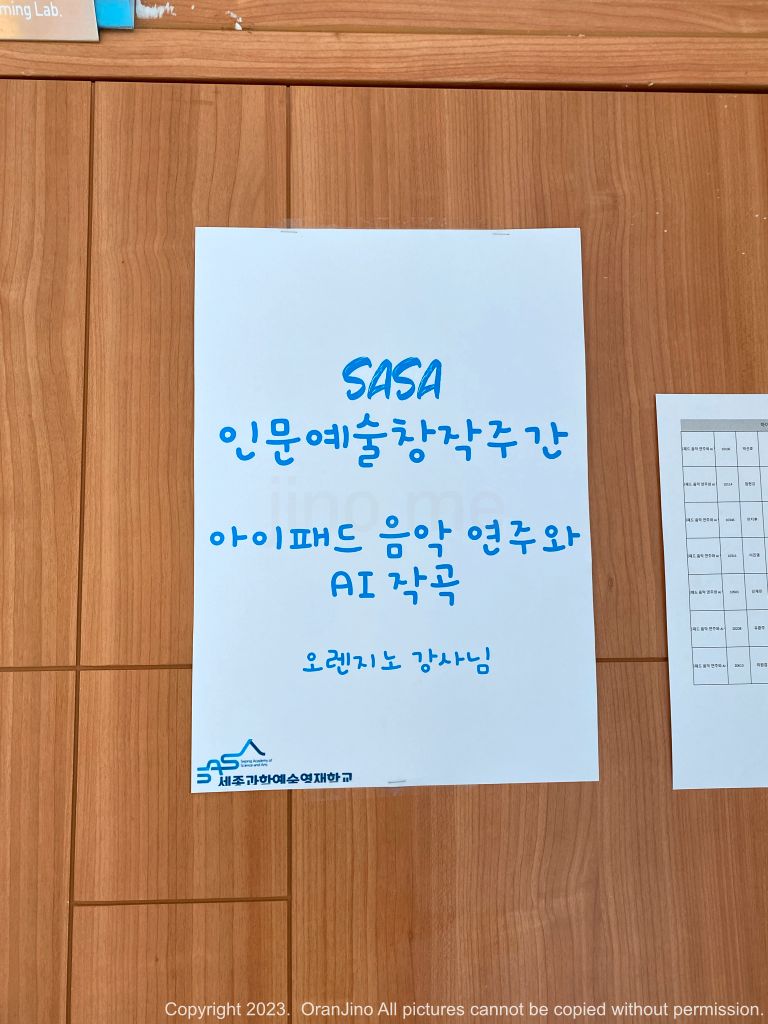 ming Lab.
SASA
인문예술창작주간
아이패드 음악 연주와
AI 작곡
오렌지노 강사님
jino.me
SASA
Sejong Academy of
Science and Arts
세종과학예술영재학교
Copyright 2023. OranJino All pictures cannot be copied without permission.